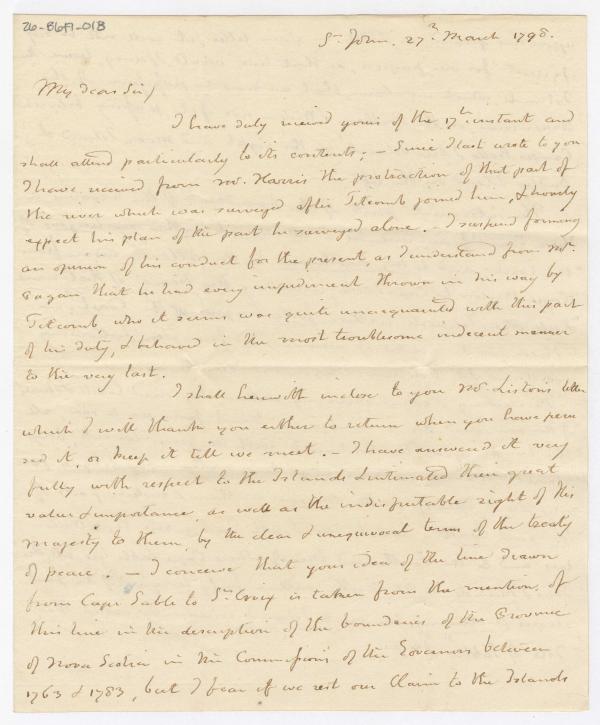 26-B649-018
St. John. 27th March 1798.
My dear Sir/
I have duly received yours of the 17th instant and
shall attend particularly to its contents; – Since I last wrote to you
I have received from Mr. Harris the protraction of that part of
the river which was surveyed after Titcomb joined him, & hourly
expect his plan of the part he surveyed alone. – I suspend forming
an opinion of his conduct for the present, as I understand from Mr.
Pagan that he had every impediment thrown in his way by
Titcomb, who it seems was quite unacquainted with this part
of his duty, & behaved in the most troublesome indecent manner
to the very last.
I shall herewith inclose to you Mr. Liston's letter
which I will thank you either to return when you have peru
sed it, or keep it till we meet. – I have answered it very
fully with respect to the Islands & intimated their great
value & importance, as well as the indisputable right of His
Majesty to them, by the clear & unequivocal terms of the treaty
of peace. – I conceive that your idea of the line drawn
from Cape Sable to St. Croix is taken from the mention of
this line in the description of the boundaries of the Province
of Nova Scotia in the Commissions of the Governors between
1763 & 1783, but I fear if we rest our Claim to the Islands